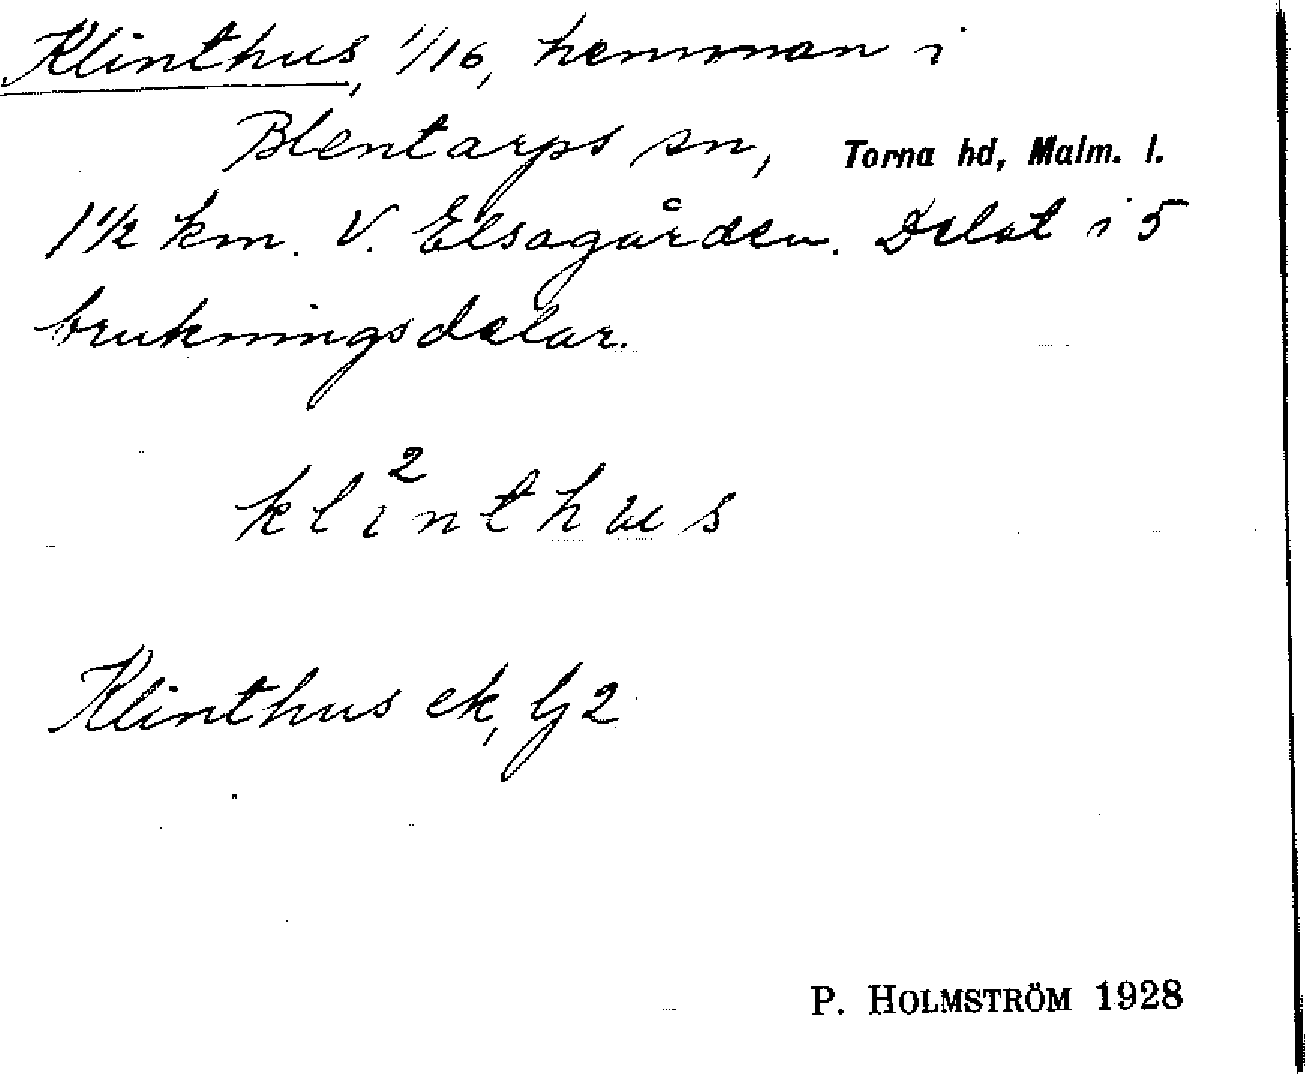 Klinthus, 1/16, hemman i
Blentarps sn, Torna hd, Malm. l.
1 1/2 km. V. Elsagården. Delat i 5
brukningsdelar.
kli²nthus
Klinthus ek, lj 2
P. HOLMSTRÖM 1928